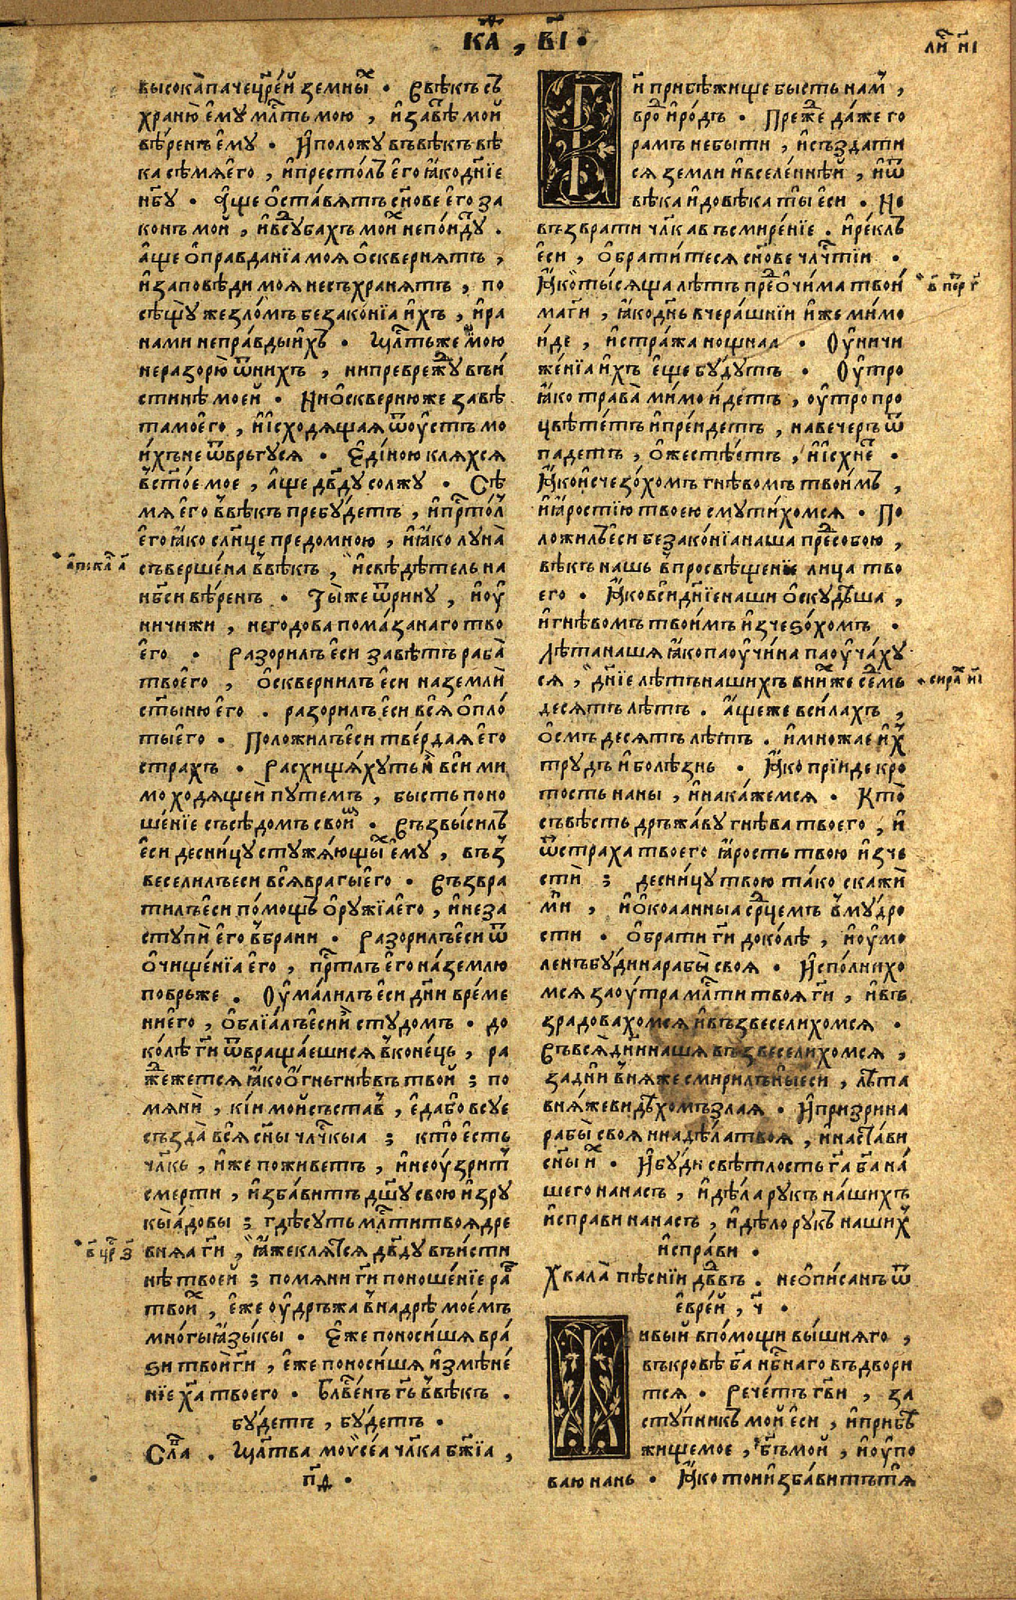 КА҃ , В҃І ·
ли҃ н҃і
высока пачецр҃ей земны҃х · Въвѣкъ съ
храню ему мл҃ть мою , и завѣ҃ мой
вѣренъ ему · И положу въвѣкъ вѣ
ка сѣмя его , и престолъ его ꙗко дн҃іе
нб҃у · Аще оставятъ сн҃ове его за
конъ мой , и в сꙋдбахъ мои҃х непои҃дꙋ .
аще оправданїа моя осквернятъ ,
и заповѣди моя несъхранятъ , по
сѣщꙋ жезломъ безаконїа ихъ , и ра
нами неправды ихъ · Мл҃ть же мою
неразорю ѿ нихъ , нипреврежꙋ въи
стинѣ моей · Ни оскверню же завѣ
та моего , и исходящая ѿ оустъ мо
ихъ не ѿвръгуся · Единою кляхся
ѡ ст҃ое мое , аще дв҃дꙋ солжу · Сѣ
мя его ввѣкъ пребꙋдетъ , и пр҃тол
его ꙗко слн҃це предомною , и ꙗко луна
съвершена ввѣкъ , и свѣдѣтель на
нб҃си вѣренъ · Ты же ѿрину , и оу
ничижи , негодова помазанаго тво
его · Разорилъ еси завѣтъ раба
твоего , осквернилъ еси наземли
ст҃ыню его . разорилъ еси вся опло
ты его · Положилъ еси твердая его
страхъ · Расхищяхуть и вси ми
мо ходящеи путемъ , бысть поно
шенїе съсѣдомъ свои҃м · Възвысилъ
еси десницу стужающы҃х ему , въз
веселилъ еси вся врагы его · Възвра
тилъ еси помощь оружїа его , и неза
ступи его вбрани · Разорилъ еси ѿ
очищенїа его , пр҃тлъ его на землю
повръже . Оумалилъ еси дн҃и време
ни его , облїалъ еси и студомъ · до
колѣ г҃и ѿвращаешися вконець , ра
жежется ꙗко огнь гнѣвъ твой ; по
мяни , кіи мой състав , еда бо всуе
създа вся сн҃ы чл҃чкыа ; кто есть
чл҃къ , иже поживетъ , и неоузрит
смерти , избавитъ дш҃у свою изру
кы адовы ; гдѣ суть мл҃ти твоя дре
в҃ цр҃ з҃
вняа г҃и , ꙗже клятся дв҃ду въисти
нѣ твоей ; помяни г҃и поношенїе ра҃б
твои҃х , еже оудръжа внадрѣ моемъ
многы языкы · Еже поносиша вра
ѕи твои г҃и , еже поносиша измѣне
нїе х҃а твоего · Бл҃венъ г҃ь ввѣкъ .
бꙋдетъ , бꙋдетъ .
Сл҃а . Мл҃тва моѵсеа чл҃ка бж҃їа ,
п҃ѳ ·
и прибѣжище бысть нам ,
вро҃ и родъ · Преже даже го
рамъ небыти , и създати
ся земли и вселеннѣй , и ѿ
вѣка и довѣка ты еси . Не
възврати чл҃ка въсмиренїе . и реклъ
еси , обратитеся сн҃ове чл҃чтїи ·
Ꙗко тысяща лѣтъ пре҃ очима твои
в҃ пе҃р г҃
ма г҃и , ꙗко дн҃ь вчерашнїи иже мимо
иде , и стража нощная · Оуничи
женїа ихъ еще бꙋдутъ · Оутро
ꙗко трава мимо идетъ , оутро про
цвѣтетъ и прейдетъ , на вечеръ ѿ
падетъ , ожестѣетъ , и исхне ·
Ꙗко исчезохомъ гнѣвомъ твоимъ ,
и ꙗростїю твоею смутихомся . По
ложилъ еси безаконїа наша пре҃ собою ,
вѣкъ нашь в просвѣщенїе лица тво
его · Ꙗко вси дн҃їе наши оскудѣша ,
и гнѣвомъ твоимъ изчеѕохомъ ·
Лѣта наша ꙗко паоучина паоучаху
ся , дн҃їе лѣтъ нашихъ вни҃х же се҃дмь
сира҃ н҃і
десятъ лѣтъ . Аще же всилахъ ,
осмъ десятъ лѣтъ . и множае и҃х
трудъ и болѣзнь · Ꙗко прїиде кро
тость на ны , и накажемся . Кто
съвѣсть дръжаву гнѣва твоего , и
ѿ страха твоего ꙗрость твою изче
сти ; десницу твою тако скажи
ми , и окованныа ср҃цемъ вмудро
сти · обрати г҃и доколѣ , и оумо
ленъ бꙋди на рабы своя · Исполнихо
мся заоутра мл҃ти твоя г҃и , и въ
зрадовахомся и възвеселихомся ·
Въ вся дн҃и наша възвеселихомся ,
за дн҃и вняже смирилъ ны еси , лѣта
вняже видѣхомъ злая . И призри на
рабы своя и на дѣла твоя , и настави
сн҃ы и҃х · И бꙋди свѣтлость г҃а б҃а на
шего на насъ , и дѣла рукъ нашихъ
исправи на насъ , и дѣло рукъ наши҃х
исправи ·
Хвала пѣснїи дв҃двъ . неописанъ ѿ
еврей , ч҃ ·
Живый впомощи вышняго ,
въкровѣ б҃а нбс҃наго въдвори
тся · Речетъ г҃ви , за
ступникъ мой еси , и прибѣ
жище мое , б҃ъ мой , и оупо
ваю нань · Ꙗко той избавитъ тя